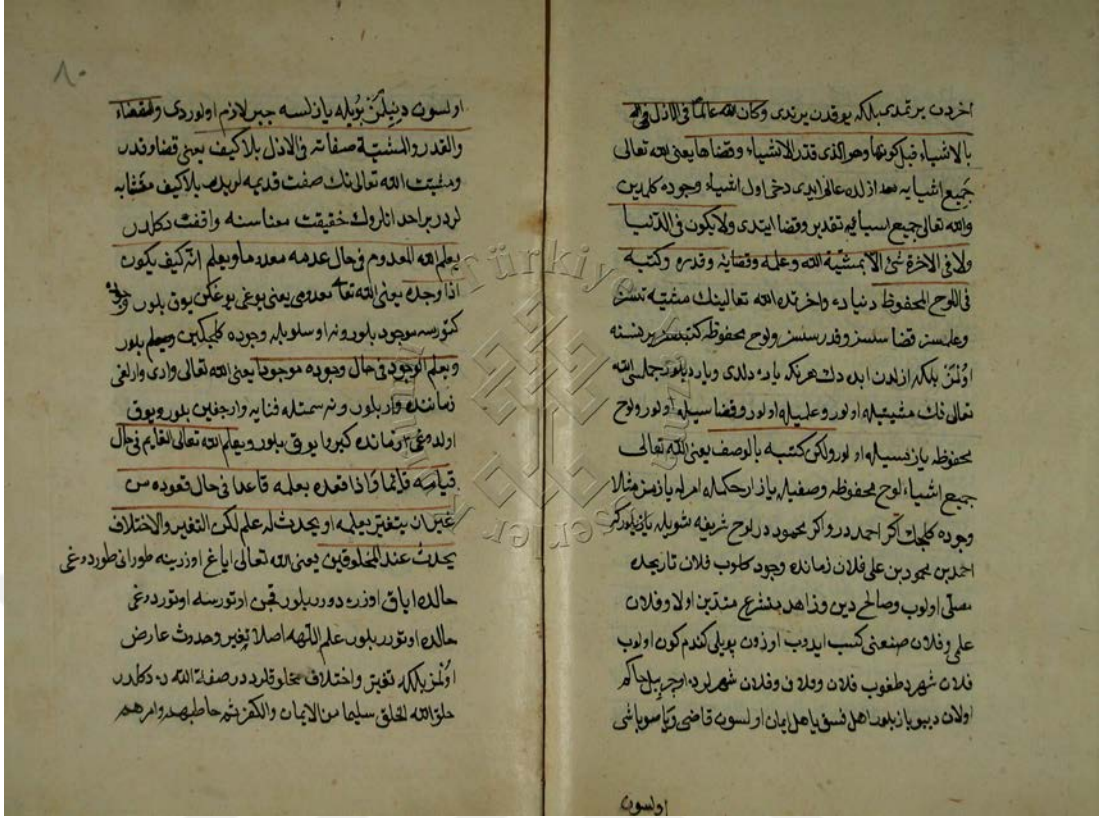 اخردن يرتمدى بلكه يوقدن يرتدى وكان الله عالما فى الازل
بالاشياء قبل كونها وهو الذى قدر الاشياء وقضاها يعنى الله تعالى
جميع اشيايه ازلده عالم ايدى دخى اول اشياء وجوده كلمدين
والله تعالى جميع اشيايى تقدير وقضا ايتدى ولا يكون فى الدنيا
ولا فى الاخرة شئ الا بمشيئة الله وعلمه وقضائه وقدره وكتبه
فى اللوح المحفوظ دنياده واخرتده الله تعالينك مشيتسز
وعلمسز قضاسسز وقدرسسز ولوح محفوظه كتبسز بر نسنه
اولمز بلكه ازلدن ابده دك هر نكه ياده دلدى جمله سى الله
تعالى نك مشيتيله اولور وعلميله اولور وقضاسيله اولور ولوح
محفوظه يازلمسيله اولور ولكن كتبه بالوصف يعنى الله تعالى
جميع اشياء لوح محفوظه وصفيله يازار حكمله امرله يازمز مثلا
وجوده كلجك اكر احمددر واكر محموددر لوح شريفه شويله يازيلوركه
احمد بن محمود بن على فلان زمانده وجوده كلوب فلان تاريخده
مصلى اولوب وصالح دين وزاهد متدين اولا وفلان
علمى وفلان صنعتى كسب ايدوب اوزون بويلى كندم كون اولوب
فلان شهرده طغوب فلان وفلان وفلان شهرلرده حاكم
اولان ديو يازيلور اهل فسق يا اهل ايمان اولسون قاضى ويا صوباشى
اولسون
٨٠
اولسون دنيلمز بويله يازلسه جبر لازم اولوردى والقضاء
والقدر والمشيئة صفاته فى الازل بلا كيف يعنى قضا وقدر
ومشيت الله تعالى نك صفت قديمه لريدر بلا كيف متشابه
لردر بر احد انلروك حقيقت معناسنه واقف دكلدر
يعلم الله المعدوم فى حال عدمه معدوما ويعلم انه كيف يكون
اذا وجده يعنى الله تعالى معدومى يعنى يوغى يوغكن يوق بلور
كتورسه موجود بلور ونه اوسلوبله وجوده كلجكين بلور
ويعلم الموجود فى حال وجوده موجودا يعنى الله تعالى وارى وارلغى
زماننده وار بلور ونه سمتله فنايه وارجغين بلور ويوق
اولدوغى زمانده كيرو يوق بلور ويعلم الله تعالى القايم فى حال
قيامه قائما واذا قعد يعلمه قاعدا فى حال قعوده من
غير ان يتغير علمه او يحدث له علم لكن التغير والاختلاف
يحدث عند المخلوقين يعنى الله تعالى اياغ اوزرينه طورانى طوردوغى
حالده اياق اوزره دورر بلور قچن اوتورسه اوتوردوغى
حالده اوتورر بلور علم الهه اصلا تغير وحدوث عارض
اولمز بلكه تغير واختلاف مخلوقلرده در صفة الله ده دكلدر
خلق الله الخلق سليما من الايمان والكفر ثم خاطبهم وامرهم
Türkiye